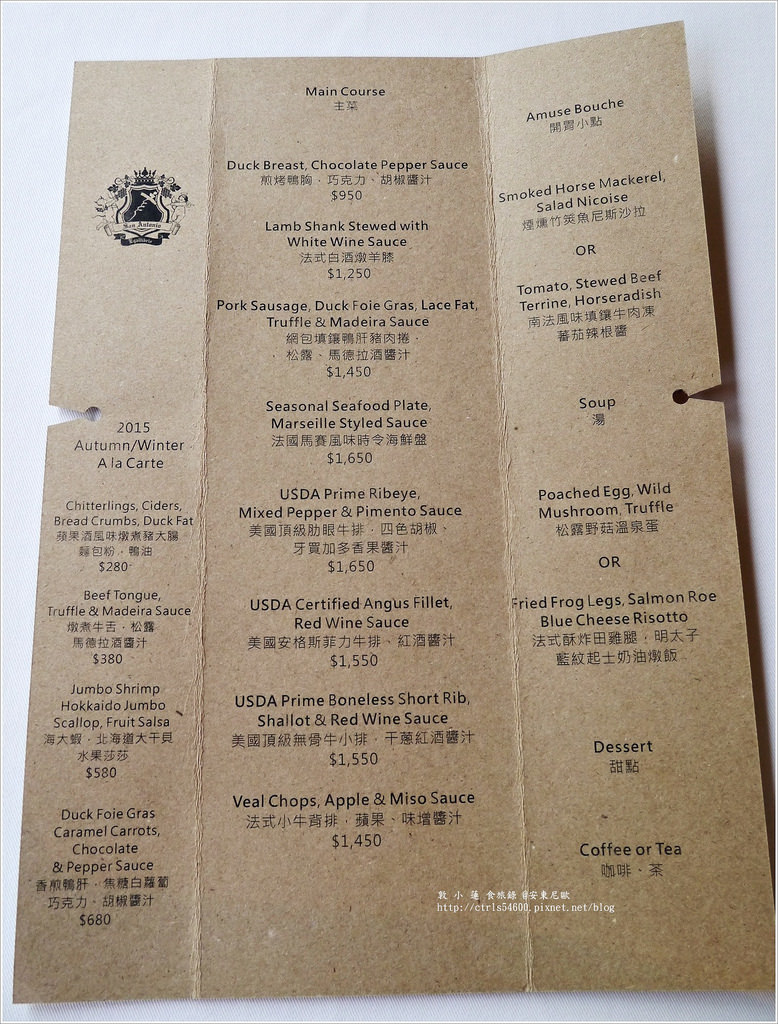 San Antonio
Equilibrio
2015
Autumn/Winter
A la Carte
Chitterlings, Ciders,
Bread Crumbs, Duck Fat
蘋果酒風味燉煮豬大腸
麵包粉．鴨油
$280
Beef Tongue,
Truffle & Madeira Sauce
燉煮牛舌．松露
馬德拉酒醬汁
$380
Jumbo Shrimp
Hokkaido Jumbo
Scallop, Fruit Salsa
海大蝦．北海道大干貝
水果莎莎
$580
Duck Foie Gras
Caramel Carrots,
Chocolate
& Pepper Sauce
香煎鴨肝．焦糖白蘿蔔
巧克力、胡椒醬汁
$680
Main Course
主菜
Duck Breast, Chocolate Pepper Sauce
煎烤鴨胸．巧克力、胡椒醬汁
$950
Lamb Shank Stewed with
White Wine Sauce
法式白酒燉羊膝
$1,250
Pork Sausage, Duck Foie Gras, Lace Fat,
Truffle & Madeira Sauce
網包填鑲鴨肝豬肉捲．
松露、馬德拉酒醬汁
$1,450
Seasonal Seafood Plate,
Marseille Styled Sauce
法國馬賽風味時令海鮮盤
$1,650
USDA Prime Ribeye,
Mixed Pepper & Pimento Sauce
美國頂級肋眼牛排．四色胡椒、
牙買加多香果醬汁
$1,650
USDA Certified Angus Fillet,
Red Wine Sauce
美國安格斯菲力牛排、紅酒醬汁
$1,550
USDA Prime Boneless Short Rib,
Shallot & Red Wine Sauce
美國頂級無骨牛小排．干蔥紅酒醬汁
$1,550
Veal Chops, Apple & Miso Sauce
法式小牛背排．蘋果、味增醬汁
$1,450
Amuse Bouche
開胃小點
Smoked Horse Mackerel,
Salad Nicoise
煙燻竹筴魚尼斯沙拉
OR
Tomato, Stewed Beef
Terrine, Horseradish
南法風味填鑲牛肉凍
蕃茄辣根醬
Soup
湯
Poached Egg, Wild
Mushroom, Truffle
松露野菇溫泉蛋
OR
Fried Frog Legs, Salmon Roe
Blue Cheese Risotto
法式酥炸田雞腿．明太子
藍紋起士奶油燉飯
Dessert
甜點
Coffee or Tea
咖啡、茶
敦 小 蓮 食旅錄 @安東尼歐
http://ctrls54600.pixnet.net/blog